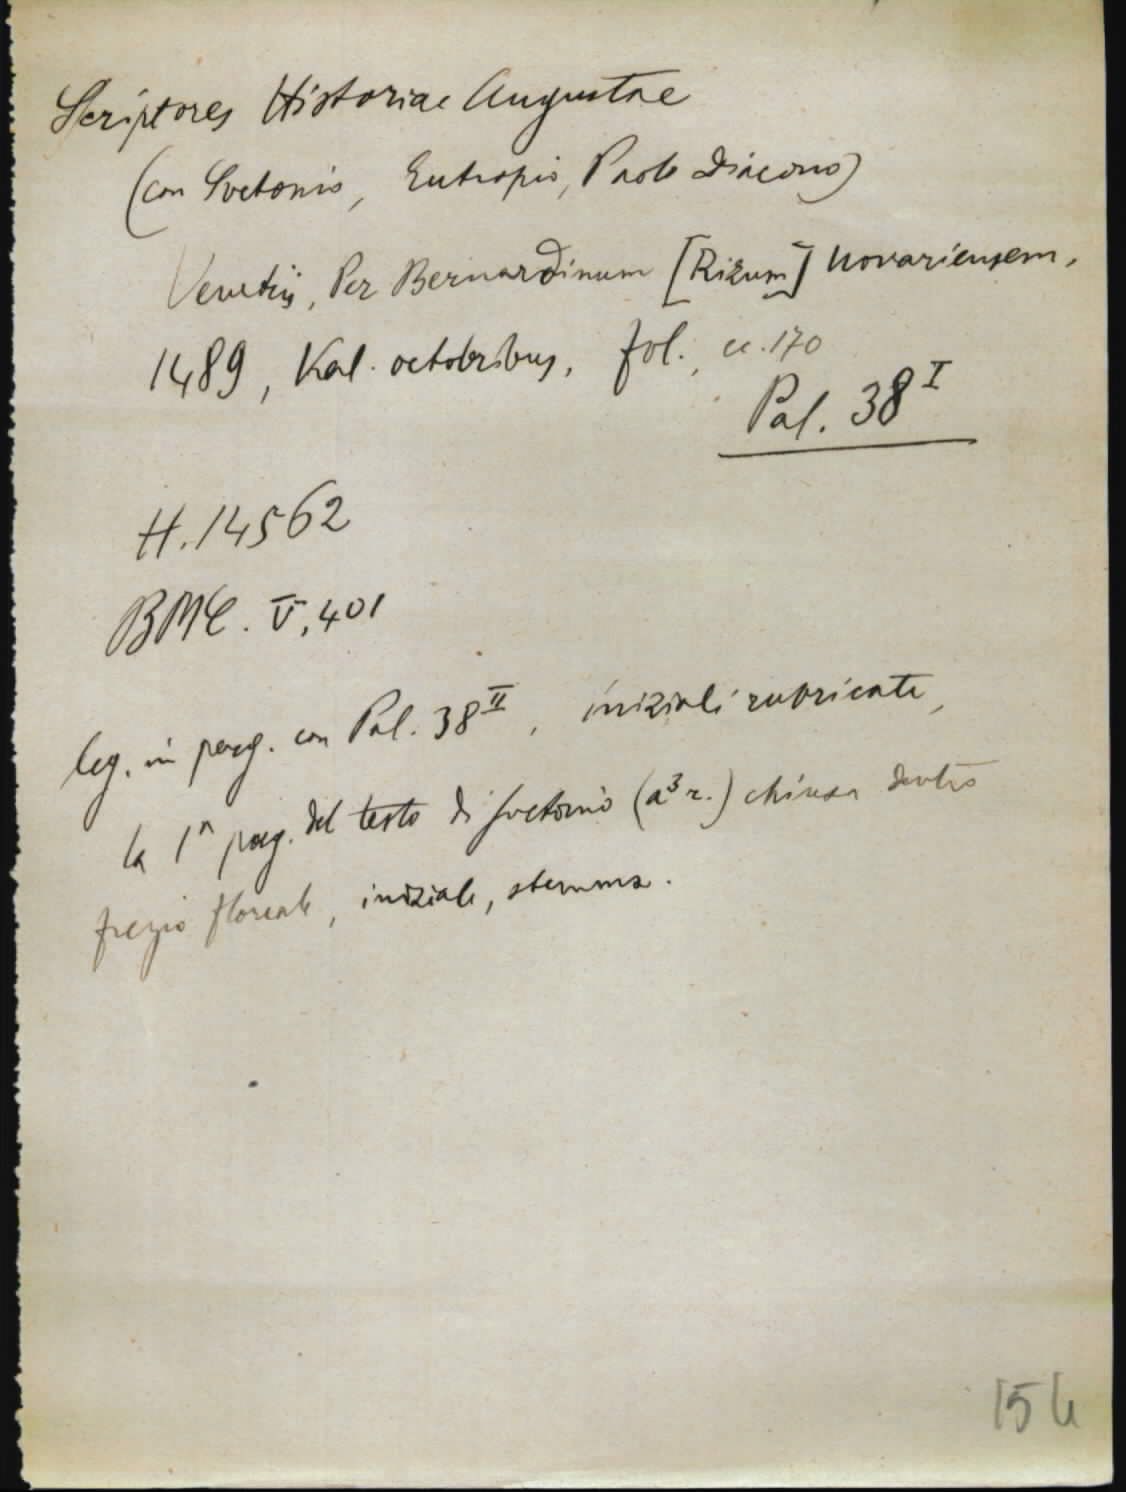 Scriptores Historiae Augustae
(con Svetonio, Eutropio, Paolo Diacono)
Venetiis, Per Bernardinum [Rizum] Novariensem,
1489, Kal. octobribus, fol., cc. 170
Pal. 38 I
H. 14562
BMC. V, 401
leg. in perg. con Pal. 38 II, iniziali rubricate,
la 1ª pag. del testo di Svetonio (a 3 r.) chiusa dentro
fregio floreale, iniziale, stemma.
154